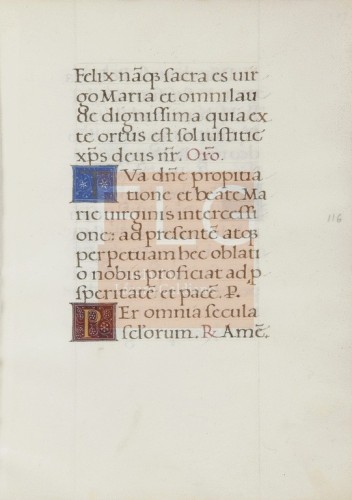 Felix nāqȝ sacra es uir
go Maria et omni lau
de dignissima quia ex
te ortus est sol iustitie
xp̄s deus nr̄. Orō.
TVa dn̄e propitia
tione et beate Ma
rie uirginis intercessi
one: ad presentē atqȝ
perpetuam hec oblati
o nobis proficiat ad p
speritatē et pacē. P.
PEr omnia secula
sclōrum. R. Amē.
116